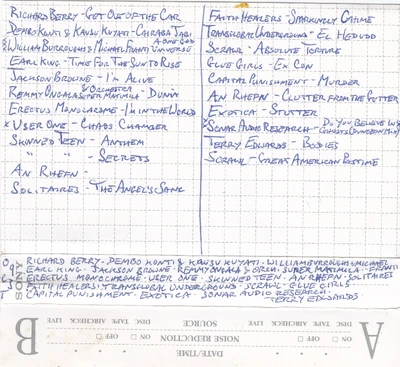 RICHARD BERRY - GET OUT OF THE CAR
DEMBO KONTI & KAUSU KUYATI - CAIRABA JABI
WILLIAM BURROUGHS/MICHAEL FRANTI - A ONE GOD UNIVERSE
EARL KING - TIME FOR THE SUN TO RISE
JACKSON BROWNE - I'M ALIVE
REMMY ONGALA & ORCHESTER SUPER MATIMILA - DUNIA
ERECTUS MONOCHROME - I'M IN THE WORLD
x USER ONE - CHAOS CHAMBER
SKINNED TEEN - ANTHEM
" " - SECRETS
AN RHEFN -
SOLITAIRES - THE ANGELS SANG
FAITH HEALERS - SPARKINGLY CHIME
TRANSGLOBAL UNDERGROUND - EL HEDUDD
SCRAWL - ABSOLUTE TORTURE
GLUE GIRLS - EX CON
CAPITAL PUNISHMENT - MURDER
AN RHEFN - CLUTTER FROM THE GUTTER
EXOTICA - STUTTER
x SONAR AUDIO RESEARCH - DO YOU BELIEVE IN GHOSTS
TERRY EDWARDS - BODIES
SCRAWL - GREAT AMERICAN PASTIME
SONY
RICHARD BERRY · DEMBO KONTI & KAUSU KUYATI · WILLIAM BURROUGHS & MICHAEL FRANTI
EARL KING · JACKSON BROWNE · REMMY ONGALA & ORCH. SUPER MATIMILA ·
ERECTUS MONOCHROME · USER ONE · SKINNED TEEN · AN RHEFN · SOLITAIRES
FAITH HEALERS · TRANSGLOBAL UNDERGROUND · SCRAWL · GLUE GIRLS ·
CAPITAL PUNISHMENT · EXOTICA · SONAR AUDIO RESEARCH ·
TERRY EDWARDS
A
DATE/TIME
NOISE REDUCTION ON OFF
SOURCE
DISC TAPE AIRCHECK LIVE
B
ON OFF
DISC TAPE AIRCHECK LIVE